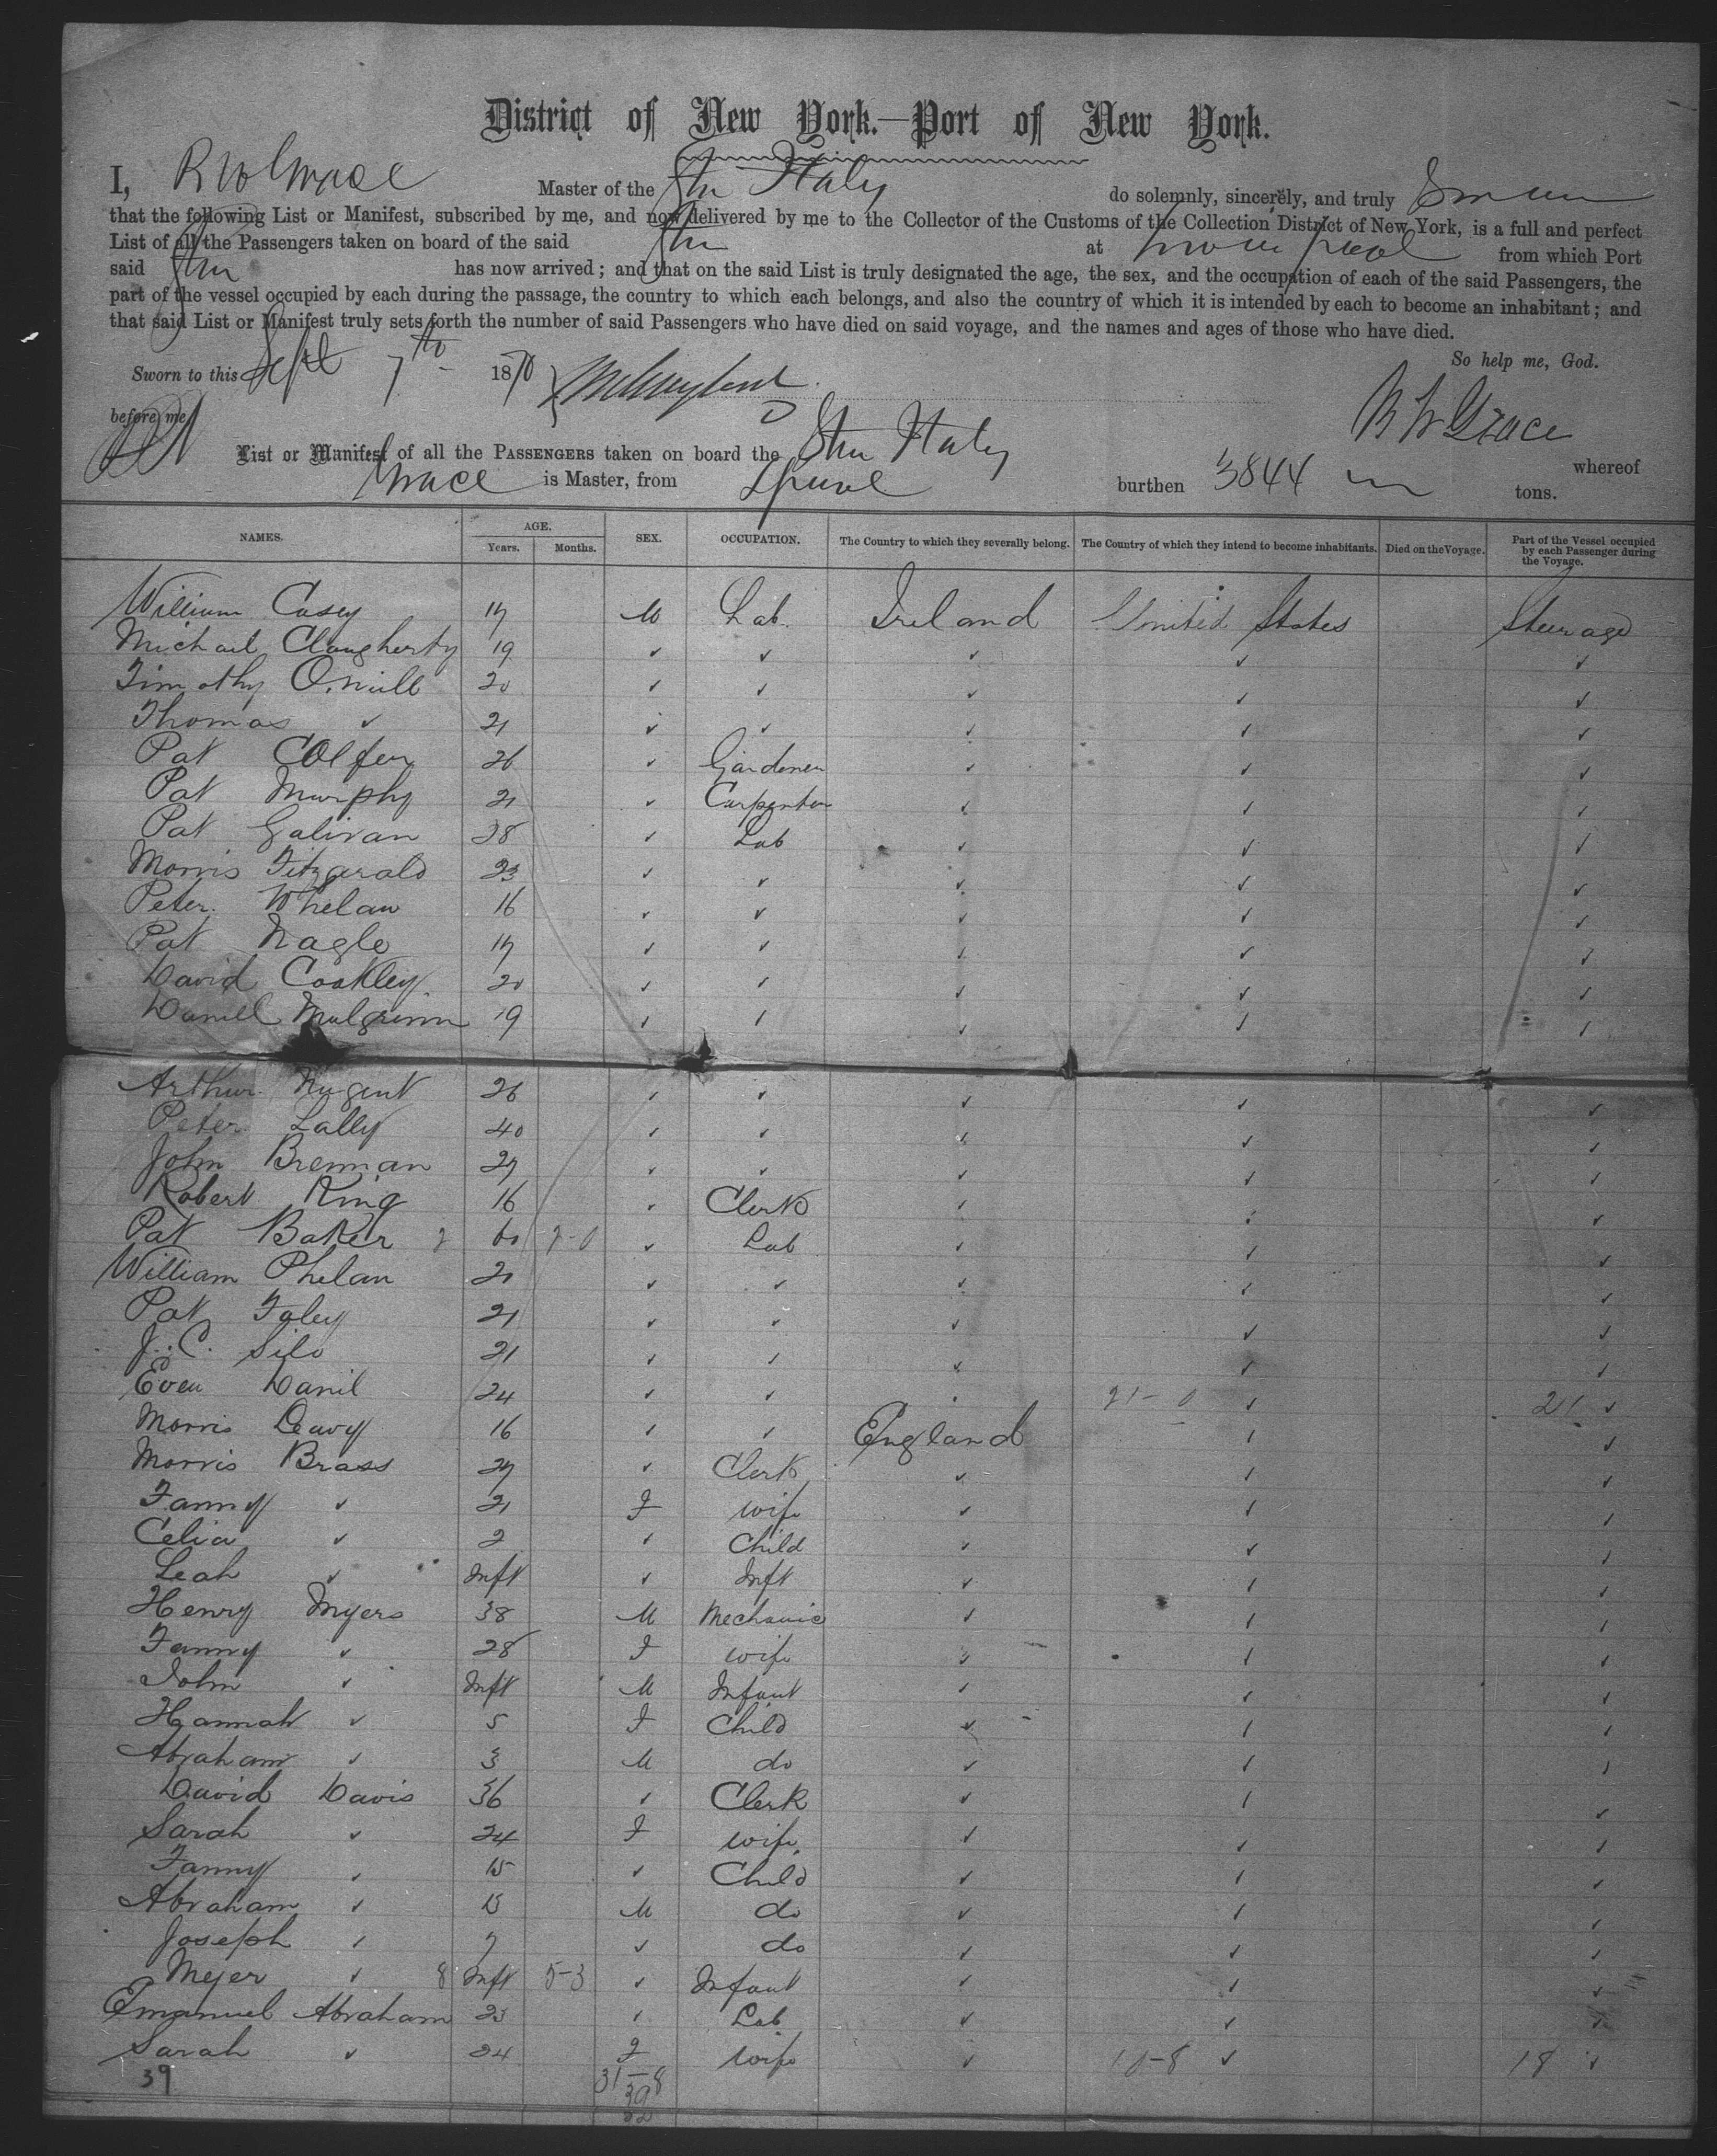 District of New York.—Port of New York.
I, R W Grace Master of the Str Italy do solemnly, sincerely, and truly Swear
that the following List or Manifest, subscribed by me, and now delivered by me to the Collector of the Customs of the Collection District of New York, is a full and perfect
List of all the Passengers taken on board of the said Str at Liverpool from which Port
said Str has now arrived; and that on the said List is truly designated the age, the sex, and the occupation of each of the said Passengers, the
part of the vessel occupied by each during the passage, the country to which each belongs, and also the country of which it is intended by each to become an inhabitant; and
that said List or Manifest truly sets forth the number of said Passengers who have died on said voyage, and the names and ages of those who have died.
So help me, God.
Sworn to this Sept 7th 1870
before me R W Grace
List or Manifest of all the PASSENGERS taken on board the Str Italy whereof
Grace is Master, from Lpool burthen 3844 tons.
NAMES. AGE. Years. Months. SEX. OCCUPATION. The Country to which they severally belong. The Country of which they intend to become inhabitants. Died on the Voyage. Part of the Vessel occupied by each Passenger during the Voyage.
William Casey 17 M Lab. Ireland United States Steerage
Michail Claugherty 19 ✓ ✓ ✓ ✓ ✓
Timothy O.niell 20 ✓ ✓ ✓ ✓ ✓
Thomas ✓ 21 ✓ ✓ ✓ ✓ ✓
Pat Colfer 26 ✓ Gardener ✓ ✓ ✓
Pat Murphy 21 ✓ Carpenter ✓ ✓ ✓
Pat Galivan 38 ✓ Lab ✓ ✓ ✓
Morris Fitzgerald 23 ✓ ✓ ✓ ✓ ✓
Peter Whelan 16 ✓ ✓ ✓ ✓ ✓
Pat Nagle 17 ✓ ✓ ✓ ✓ ✓
David Coakley 20 ✓ ✓ ✓ ✓ ✓
Daniel Mulgrinn 19 ✓ ✓ ✓ ✓ ✓
Arthur Nugent 26 ✓ ✓ ✓ ✓ ✓
Peter Lally 40 ✓ ✓ ✓ ✓ ✓
John Brennan 27 ✓ ✓ ✓ ✓ ✓
Robert King 16 ✓ Clerk ✓ ✓ ✓
Pat Baker 2 60 2-0 ✓ Lab ✓ ✓ ✓
William Phelan 20 ✓ ✓ ✓ ✓ ✓
Pat Foley 21 ✓ ✓ ✓ ✓ ✓
J. C. Silo 21 ✓ ✓ ✓ ✓ ✓
Even Danil 24 ✓ ✓ ✓ 21-0 ✓ 21 ✓
Morris Deavy 16 ✓ ✓ England ✓ ✓
Morris Brass 27 ✓ Clerk ✓ ✓ ✓
Fanny ✓ 21 F wife ✓ ✓ ✓
Celia ✓ 2 ✓ Child ✓ ✓ ✓
Leah ✓ Inft ✓ Inft ✓ ✓ ✓
Henry Myers 38 M Mechanic ✓ ✓ ✓
Fanny ✓ 28 F wife ✓ ✓ ✓
John ✓ Inft M Infant ✓ ✓ ✓
Hannah ✓ 5 F Child ✓ ✓ ✓
Abraham ✓ 3 M do ✓ ✓ ✓
David Davis 36 ✓ Clerk ✓ ✓ ✓
Sarah ✓ 24 F wife ✓ ✓ ✓
Fanny ✓ 15 ✓ Child ✓ ✓ ✓
Abraham ✓ 13 M do ✓ ✓ ✓
Joseph ✓ 7 ✓ do ✓ ✓ ✓
Meyer ✓ 8 Inft 5-3 ✓ Infant ✓ ✓ ✓
Emanuel Abraham 23 ✓ Lab ✓ ✓ ✓
Sarah ✓ 24 F wife ✓ 10-8 ✓ 18 ✓
39 31-8
39